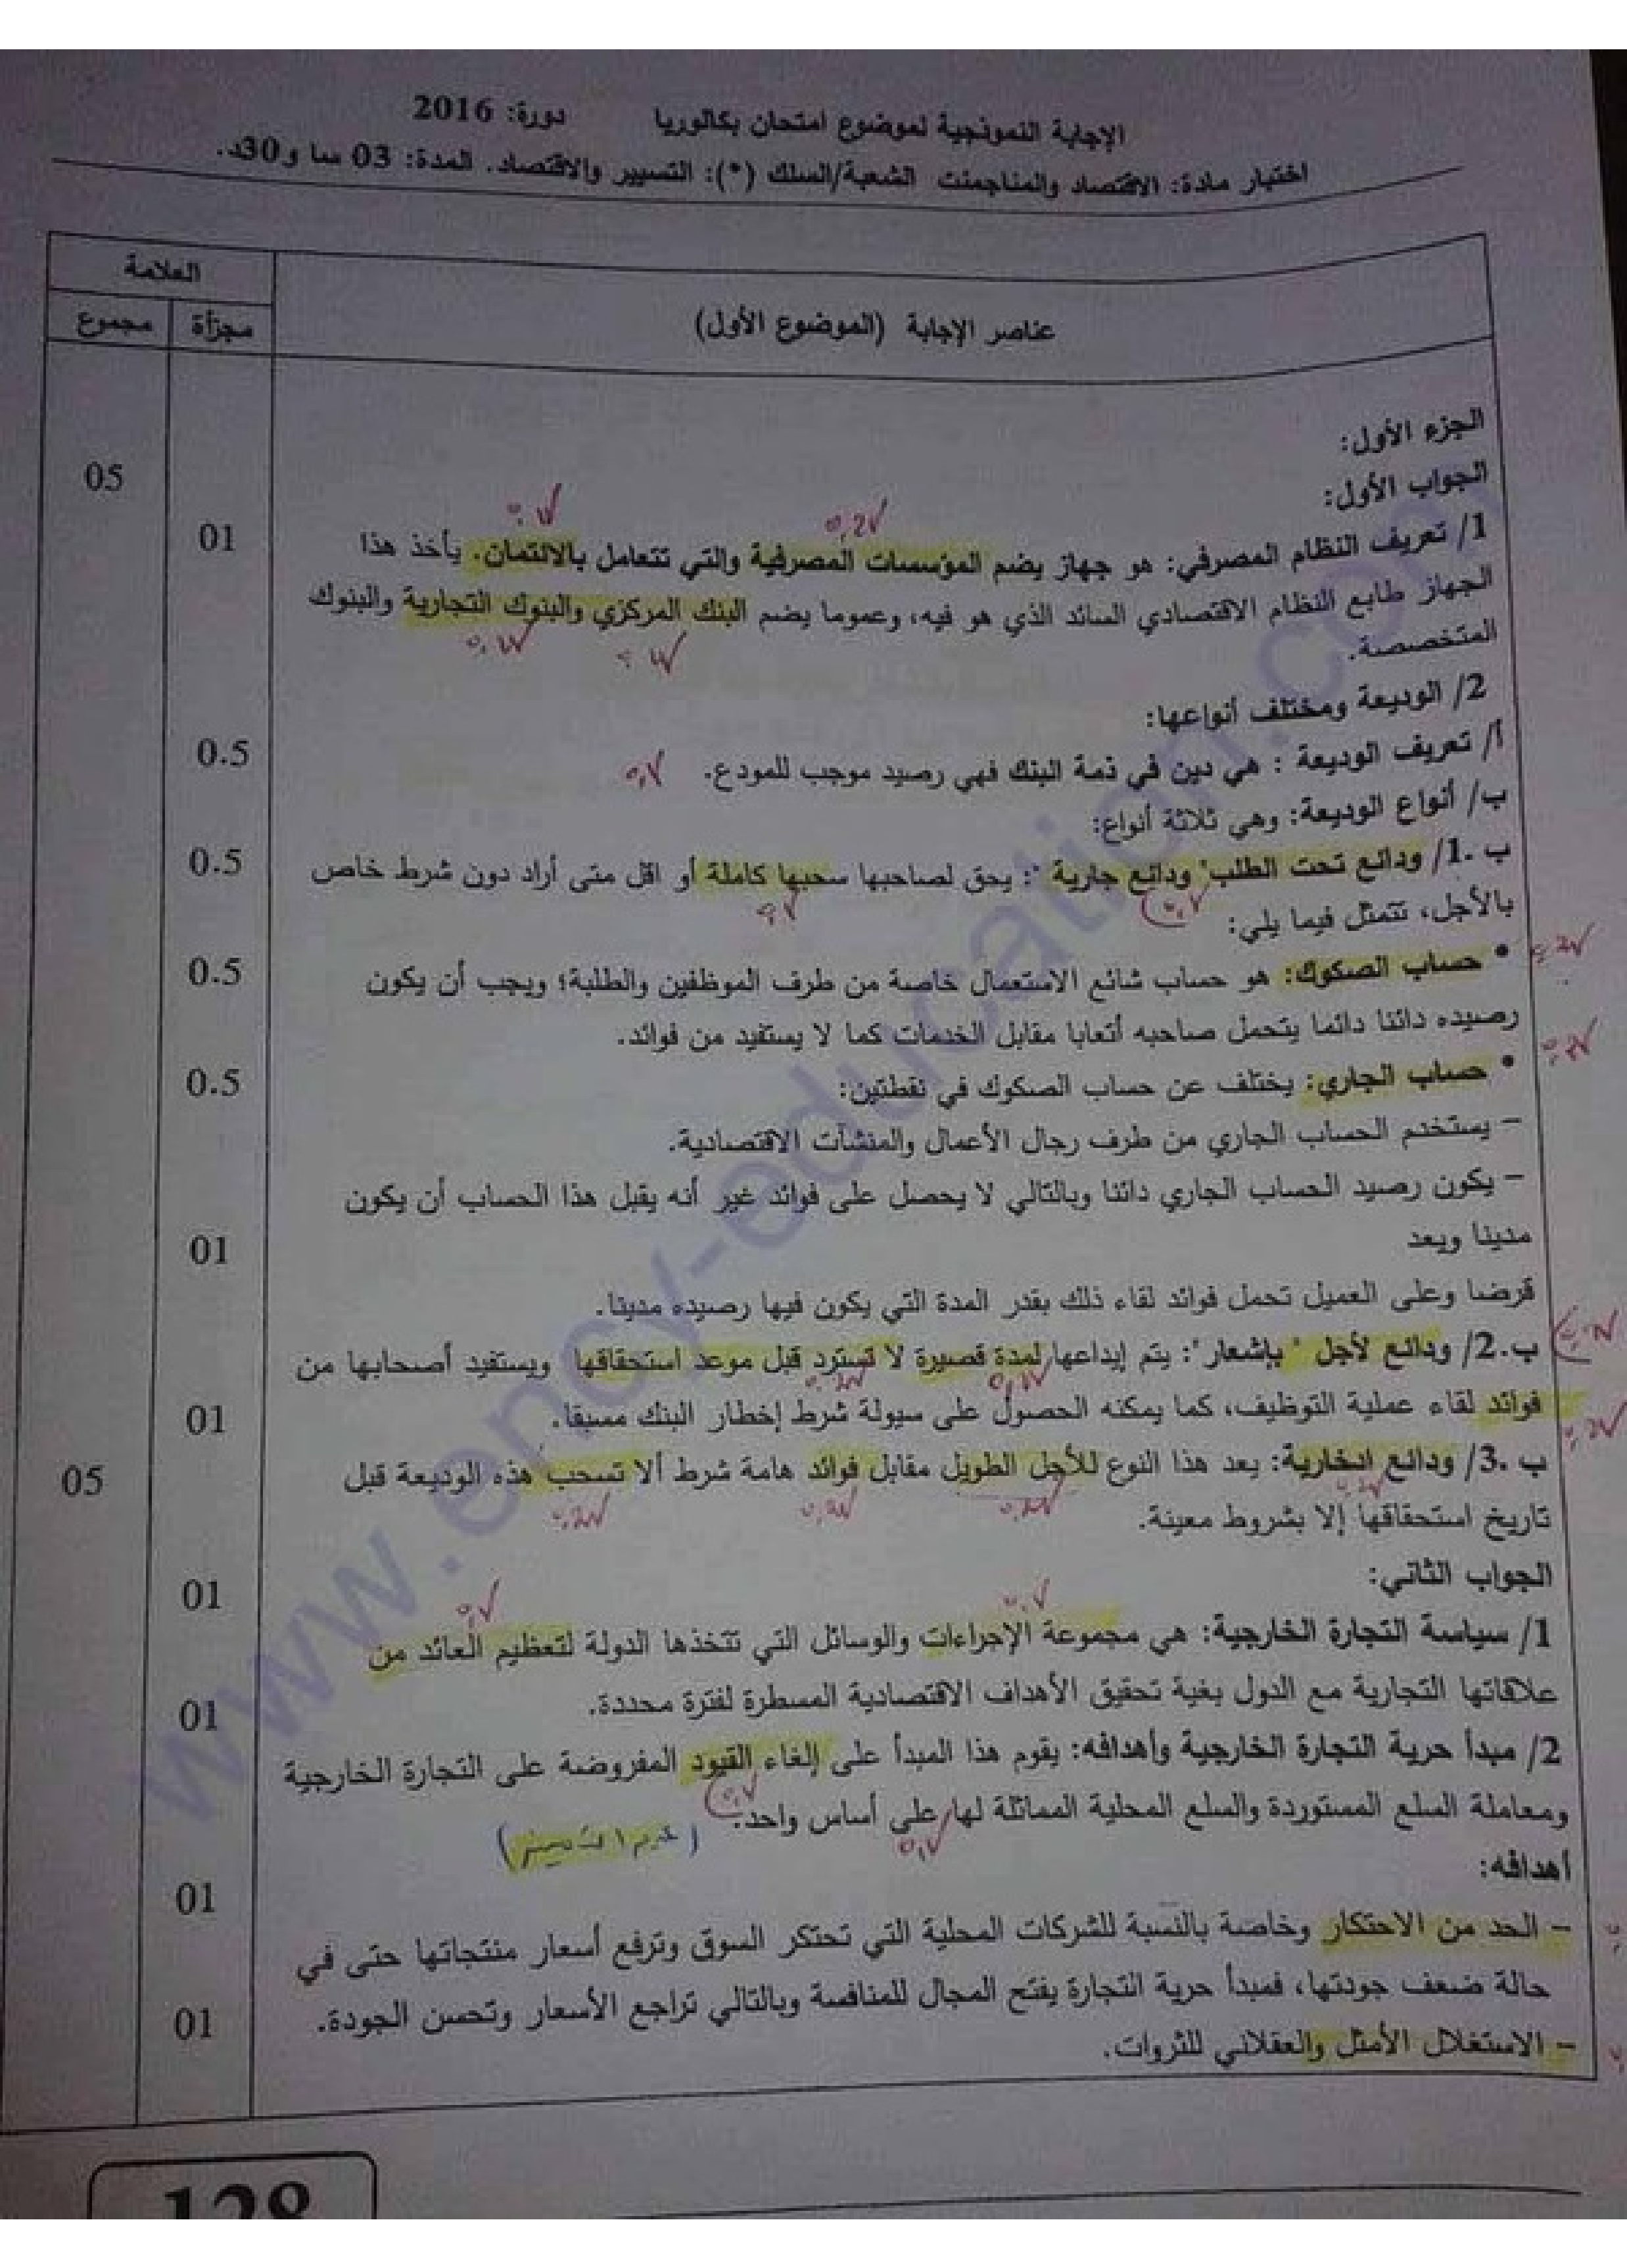 الإجابة النموذجية لموضوع امتحان بكالوريا دورة: 2016
اختبار مادة: الاقتصاد والمناجمنت الشعبة/السلك (*): التسيير والاقتصاد. المدة: 03 سا و30د.
العلامة
عناصر الإجابة (الموضوع الأول)
مجزأة مجموع
الجزء الأول:
05
الجواب الأول:
1/ تعريف النظام المصرفي: هو جهاز يضم المؤسسات المصرفية والتي تتعامل بالائتمان. يأخذ هذا 01
الجهاز طابع النظام الاقتصادي السائد الذي هو فيه، وعموما يضم البنك المركزي والبنوك التجارية والبنوك
المتخصصة.
2/ الوديعة ومختلف أنواعها:
أ/ تعريف الوديعة : هي دين في ذمة البنك فهي رصيد موجب للمودع. 0.5
ب/ أنواع الوديعة: وهي ثلاثة أنواع:
ب .1/ ودائع تحت الطلب" ودائع جارية ": يحق لصاحبها سحبها كاملة أو اقل متى أراد دون شرط خاص 0.5
بالأجل، تتمثل فيما يلي:
• حساب الصكوك: هو حساب شائع الاستعمال خاصة من طرف الموظفين والطلبة؛ ويجب أن يكون 0.5
رصيده دائنا دائما يتحمل صاحبه أتعابا مقابل الخدمات كما لا يستفيد من فوائد.
• حساب الجاري: يختلف عن حساب الصكوك في نقطتين: 0.5
– يستخدم الحساب الجاري من طرف رجال الأعمال والمنشآت الاقتصادية.
– يكون رصيد الحساب الجاري دائنا وبالتالي لا يحصل على فوائد غير أنه يقبل هذا الحساب أن يكون
مدينا ويعد 01
قرضا وعلى العميل تحمل فوائد لقاء ذلك بقدر المدة التي يكون فيها رصيده مدينا.
ب.2/ ودائع لأجل " بإشعار": يتم إيداعها لمدة قصيرة لا تسترد قبل موعد استحقاقها ويستفيد أصحابها من
فوائد لقاء عملية التوظيف، كما يمكنه الحصول على سيولة شرط إخطار البنك مسبقا. 01
ب .3/ ودائع ادخارية: يعد هذا النوع للأجل الطويل مقابل فوائد هامة شرط ألا تسحب هذه الوديعة قبل 05
تاريخ استحقاقها إلا بشروط معينة.
الجواب الثاني:
1/ سياسة التجارة الخارجية: هي مجموعة الإجراءات والوسائل التي تتخذها الدولة لتعظيم العائد من 01
علاقاتها التجارية مع الدول بغية تحقيق الأهداف الاقتصادية المسطرة لفترة محددة. 01
2/ مبدأ حرية التجارة الخارجية وأهدافه: يقوم هذا المبدأ على إلغاء القيود المفروضة على التجارة الخارجية
ومعاملة السلع المستوردة والسلع المحلية المماثلة لها على أساس واحد. (عدم التمييز)
أهدافه: 01
– الحد من الاحتكار وخاصة بالنسبة للشركات المحلية التي تحتكر السوق وترفع أسعار منتجاتها حتى في
حالة ضعف جودتها، فمبدأ حرية التجارة يفتح المجال للمنافسة وبالتالي تراجع الأسعار وتحسن الجودة.
– الاستغلال الأمثل والعقلاني للثروات. 01
128
www.ency-education.com